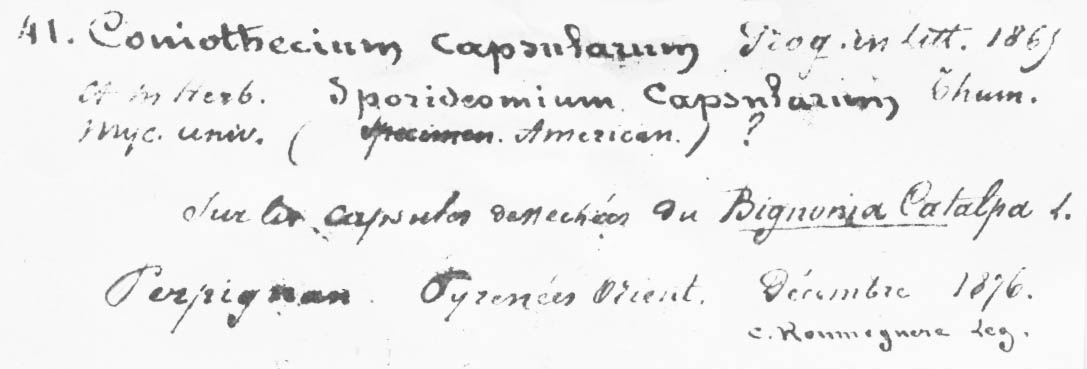 41. Coniothecium capsularum Trog. in litt. 1865
et in Herb. Sporideomium Capsularum Thum.
Myc. univ. (Specimen. American.) ?
Sur les capsules dessechées du Bignonia Catalpa L.
Perpignan. Pyrenées Orient. Décembre 1876.
C. Roumeguere Leg.